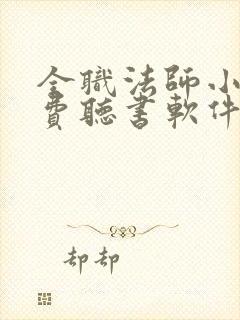 全職法師小
費聽書軟件
却却